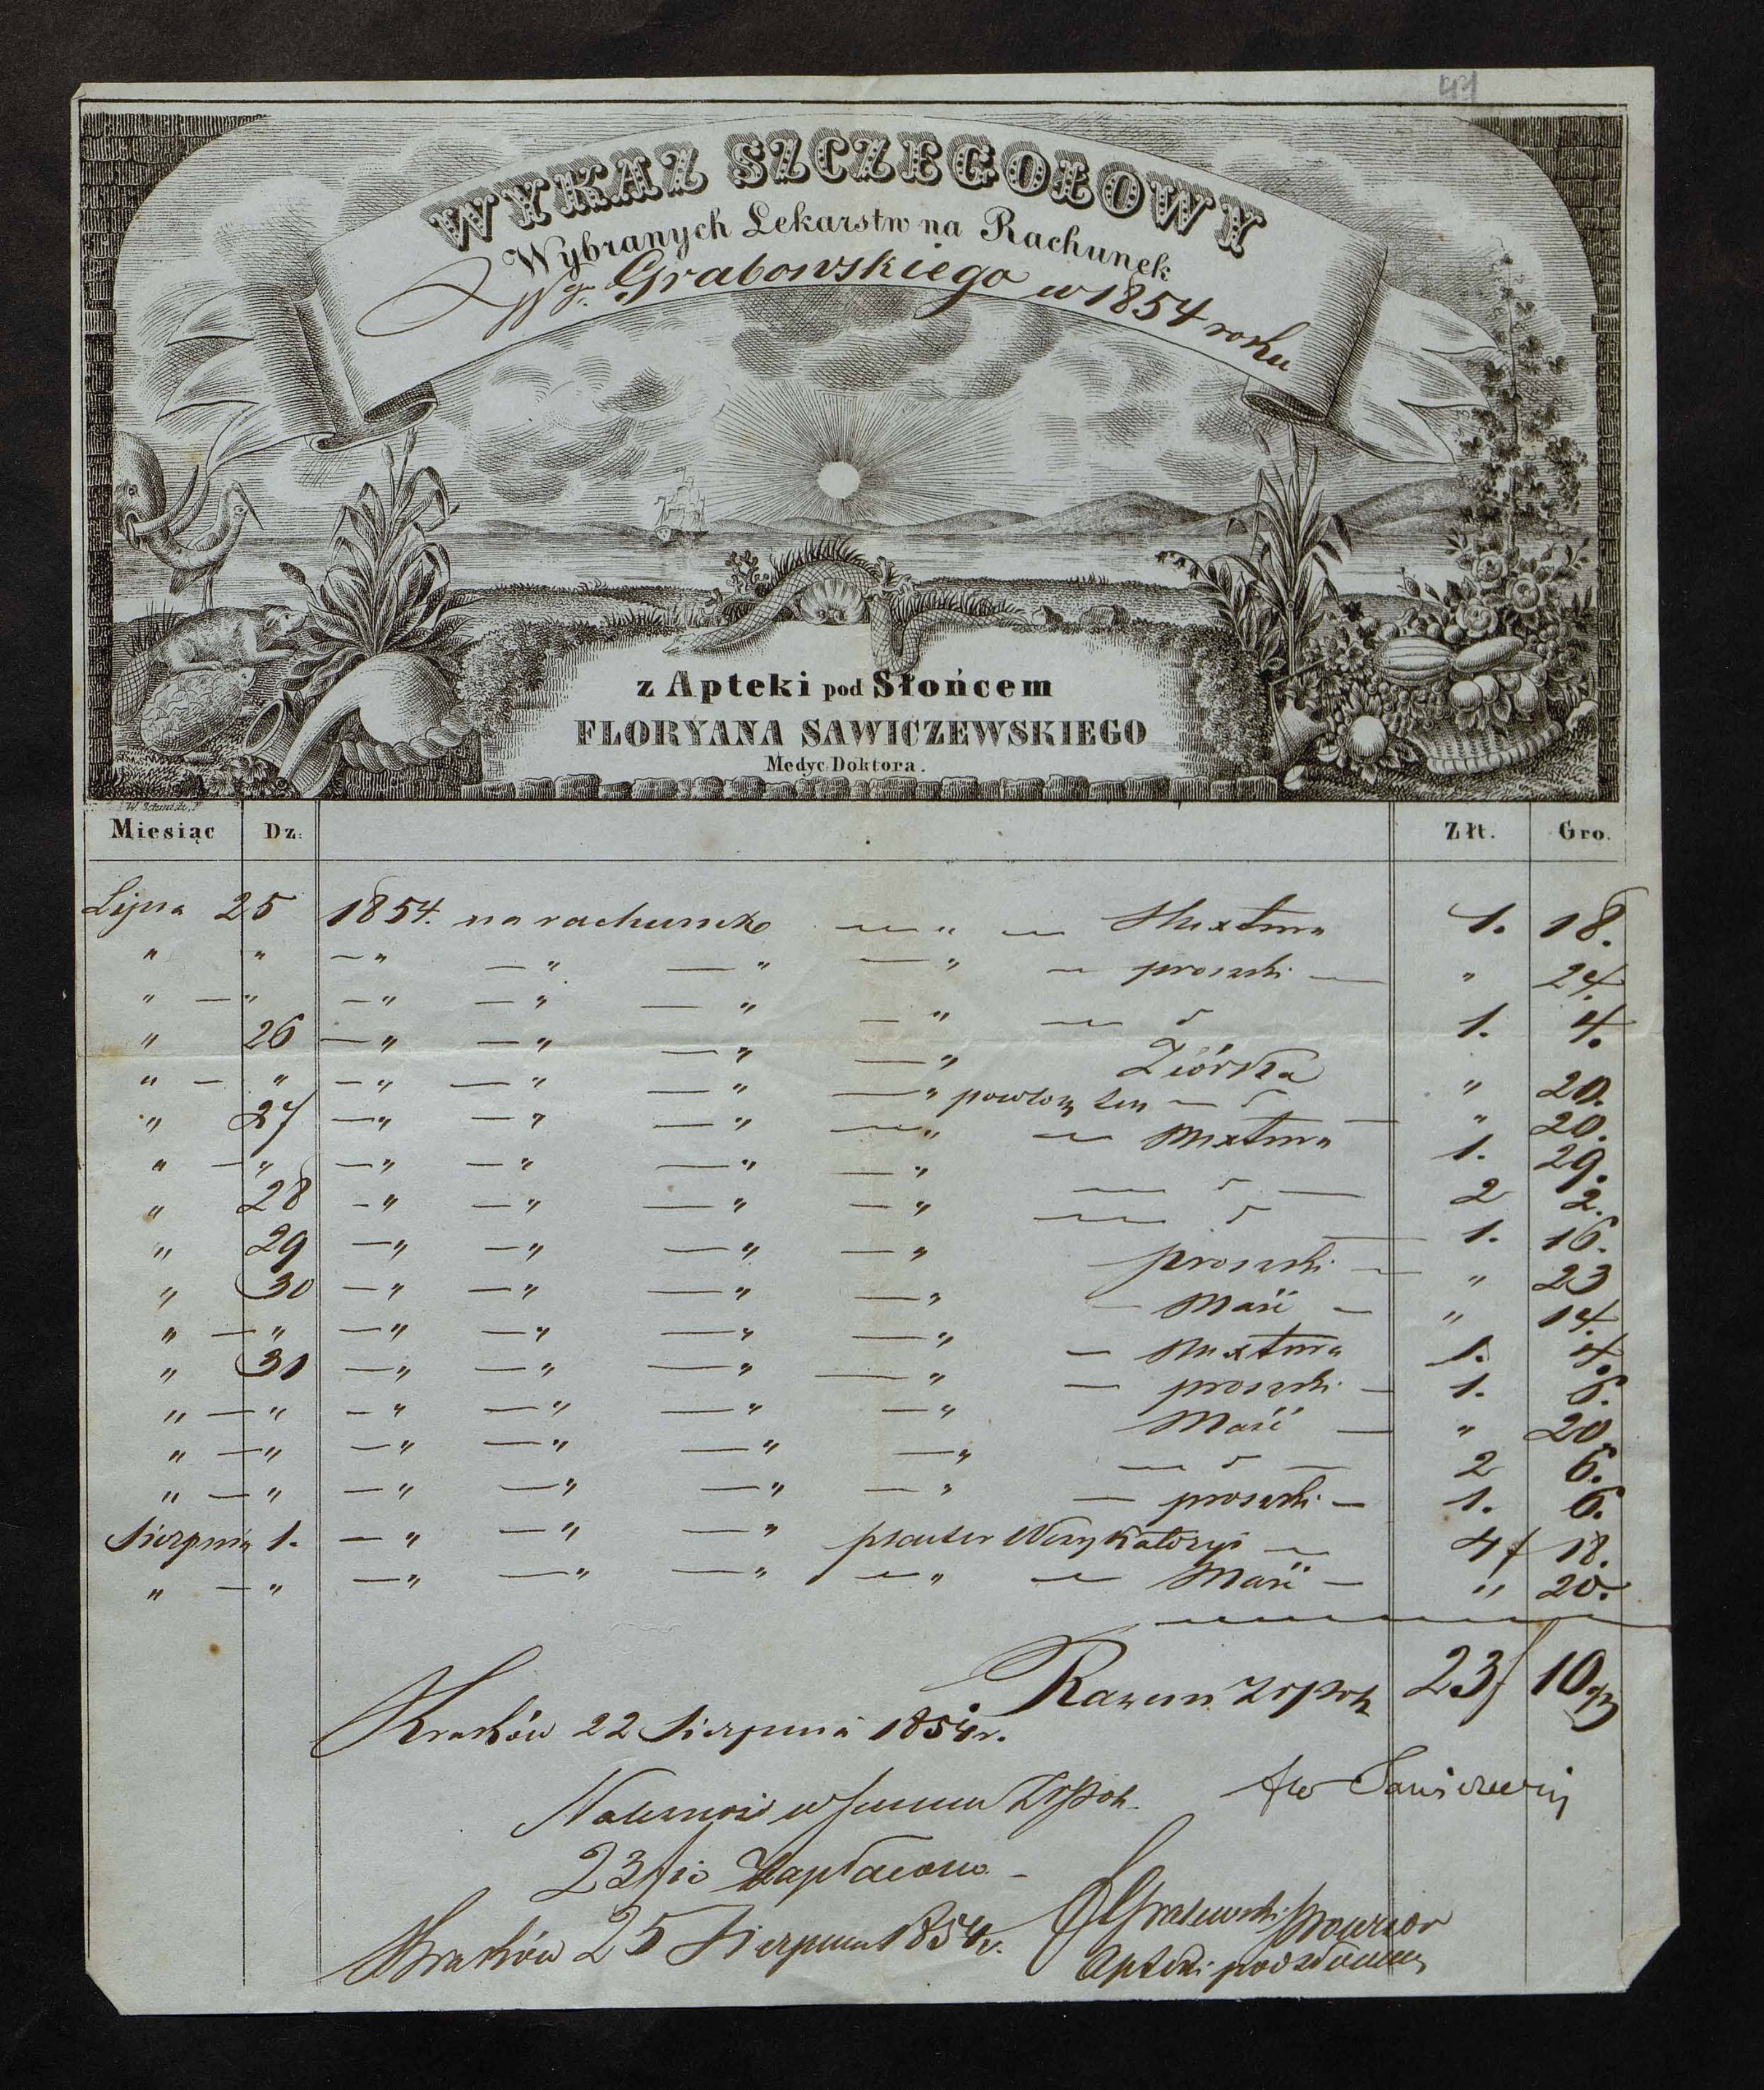 WYKAZ SZCZEGOŁOWY
Wybranych Lekarstw na Rachunek
Wgo. Grabowskiego w 1854 roku
z Apteki pod Słońcem
FLORYANA SAWICZEWSKIEGO
Medyc. Doktora.
Miesiąc Dz: Złt. Gro.
Lipca 25 1854. na rachunek — " — Mixtura 1. 18.
" " — " — " — " — " — proszki — " 24.
" — " — " — " — " — " — 1. 4.
" 26 — " — " — " — " Ziółka " 20.
" — " — " — " — " — " — " 20.
" 27 — " — " — " — " — Mixtura 1. 29.
" — " — " — " — " — " — 2 2.
" 28 — " — " — " — " — 1. 16.
" 29 — " — " — " — " proszki — " 23
" 30 — " — " — " — " — Maść — " 14.
" — " — " — " — " — " — Mixtura 1. 4.
" 31 — " — " — " — " — proszki — 1. 6.
" — " — " — " — " — " Maść — " 20
" — " — " — " — " — " — 2 6.
" — " — " — " — " — " — proszki — 1. 6.
Sierpnia 1. — " — " — " plaster Wezykatoryi — 4 18.
" — " — " — " — " — " — Maść — " 20.
Razem Złpolk 23 10 gr
Kraków 22 Sierpnia 1854 r.
Sawiczewski
Należność w Summie Złpol.
23/10 Zapłacono —
Kraków 25 Sierpnia 1854 r. Prowizor
Apteki pod słońcem